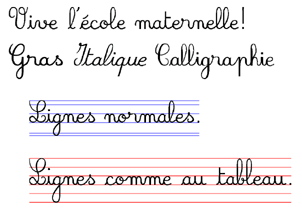 Vive l'école maternelle!
Gras Italique Calligraphie
Lignes normales.
Lignes comme au tableau.